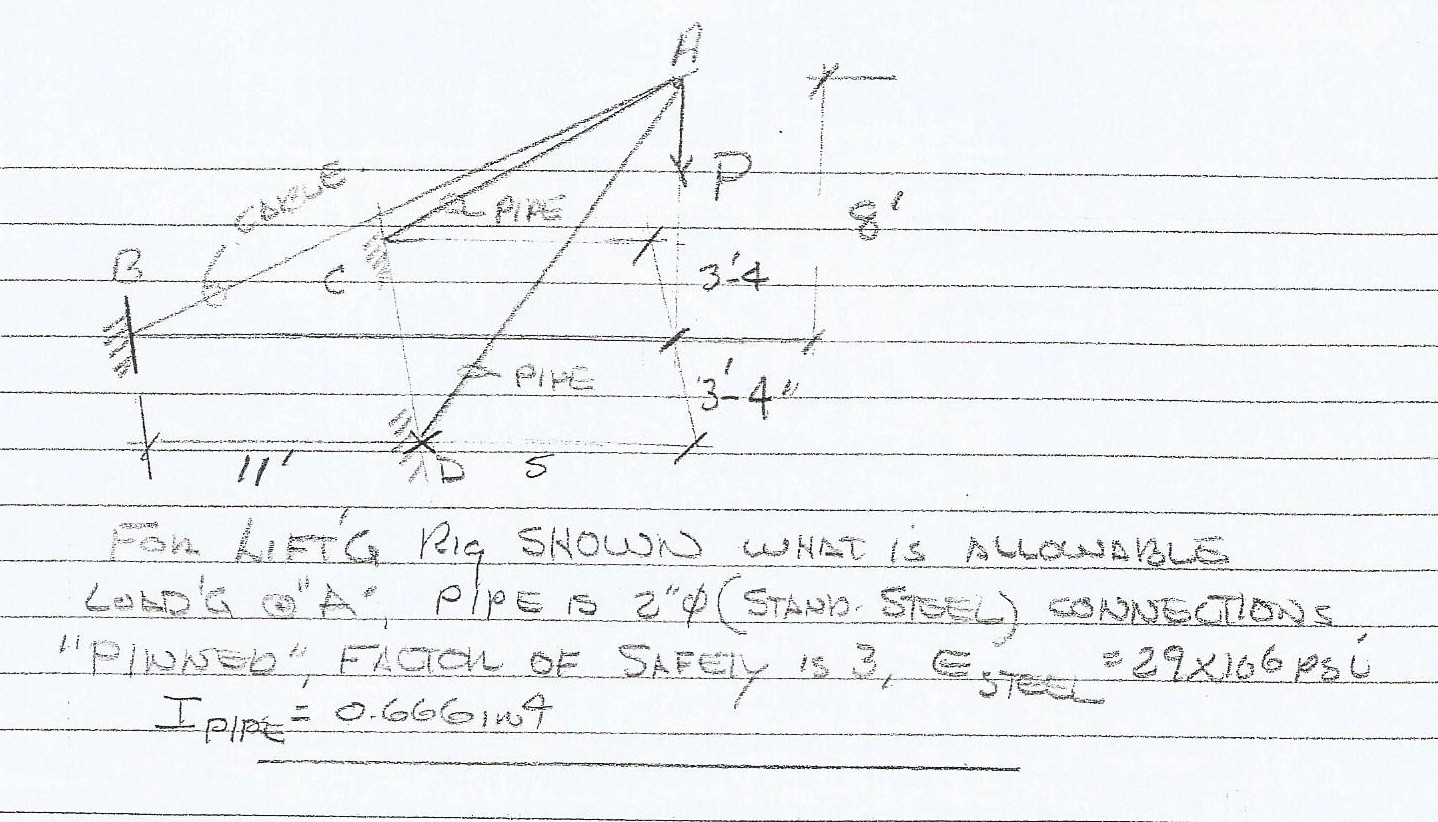 A
P
8'
CABLE
PIPE
B
C
3'-4
PIPE
3'-4"
11'
D
5
FOR LIFT'G RIG SHOWN WHAT IS ALLOWABLE
LOAD'G @"A", PIPE IS 2"φ (STAND. STEEL) CONNECTIONS
"PINNED", FACTOR OF SAFETY IS 3, E STEEL = 29X106 PSI
I PIPE = 0.666 IN4